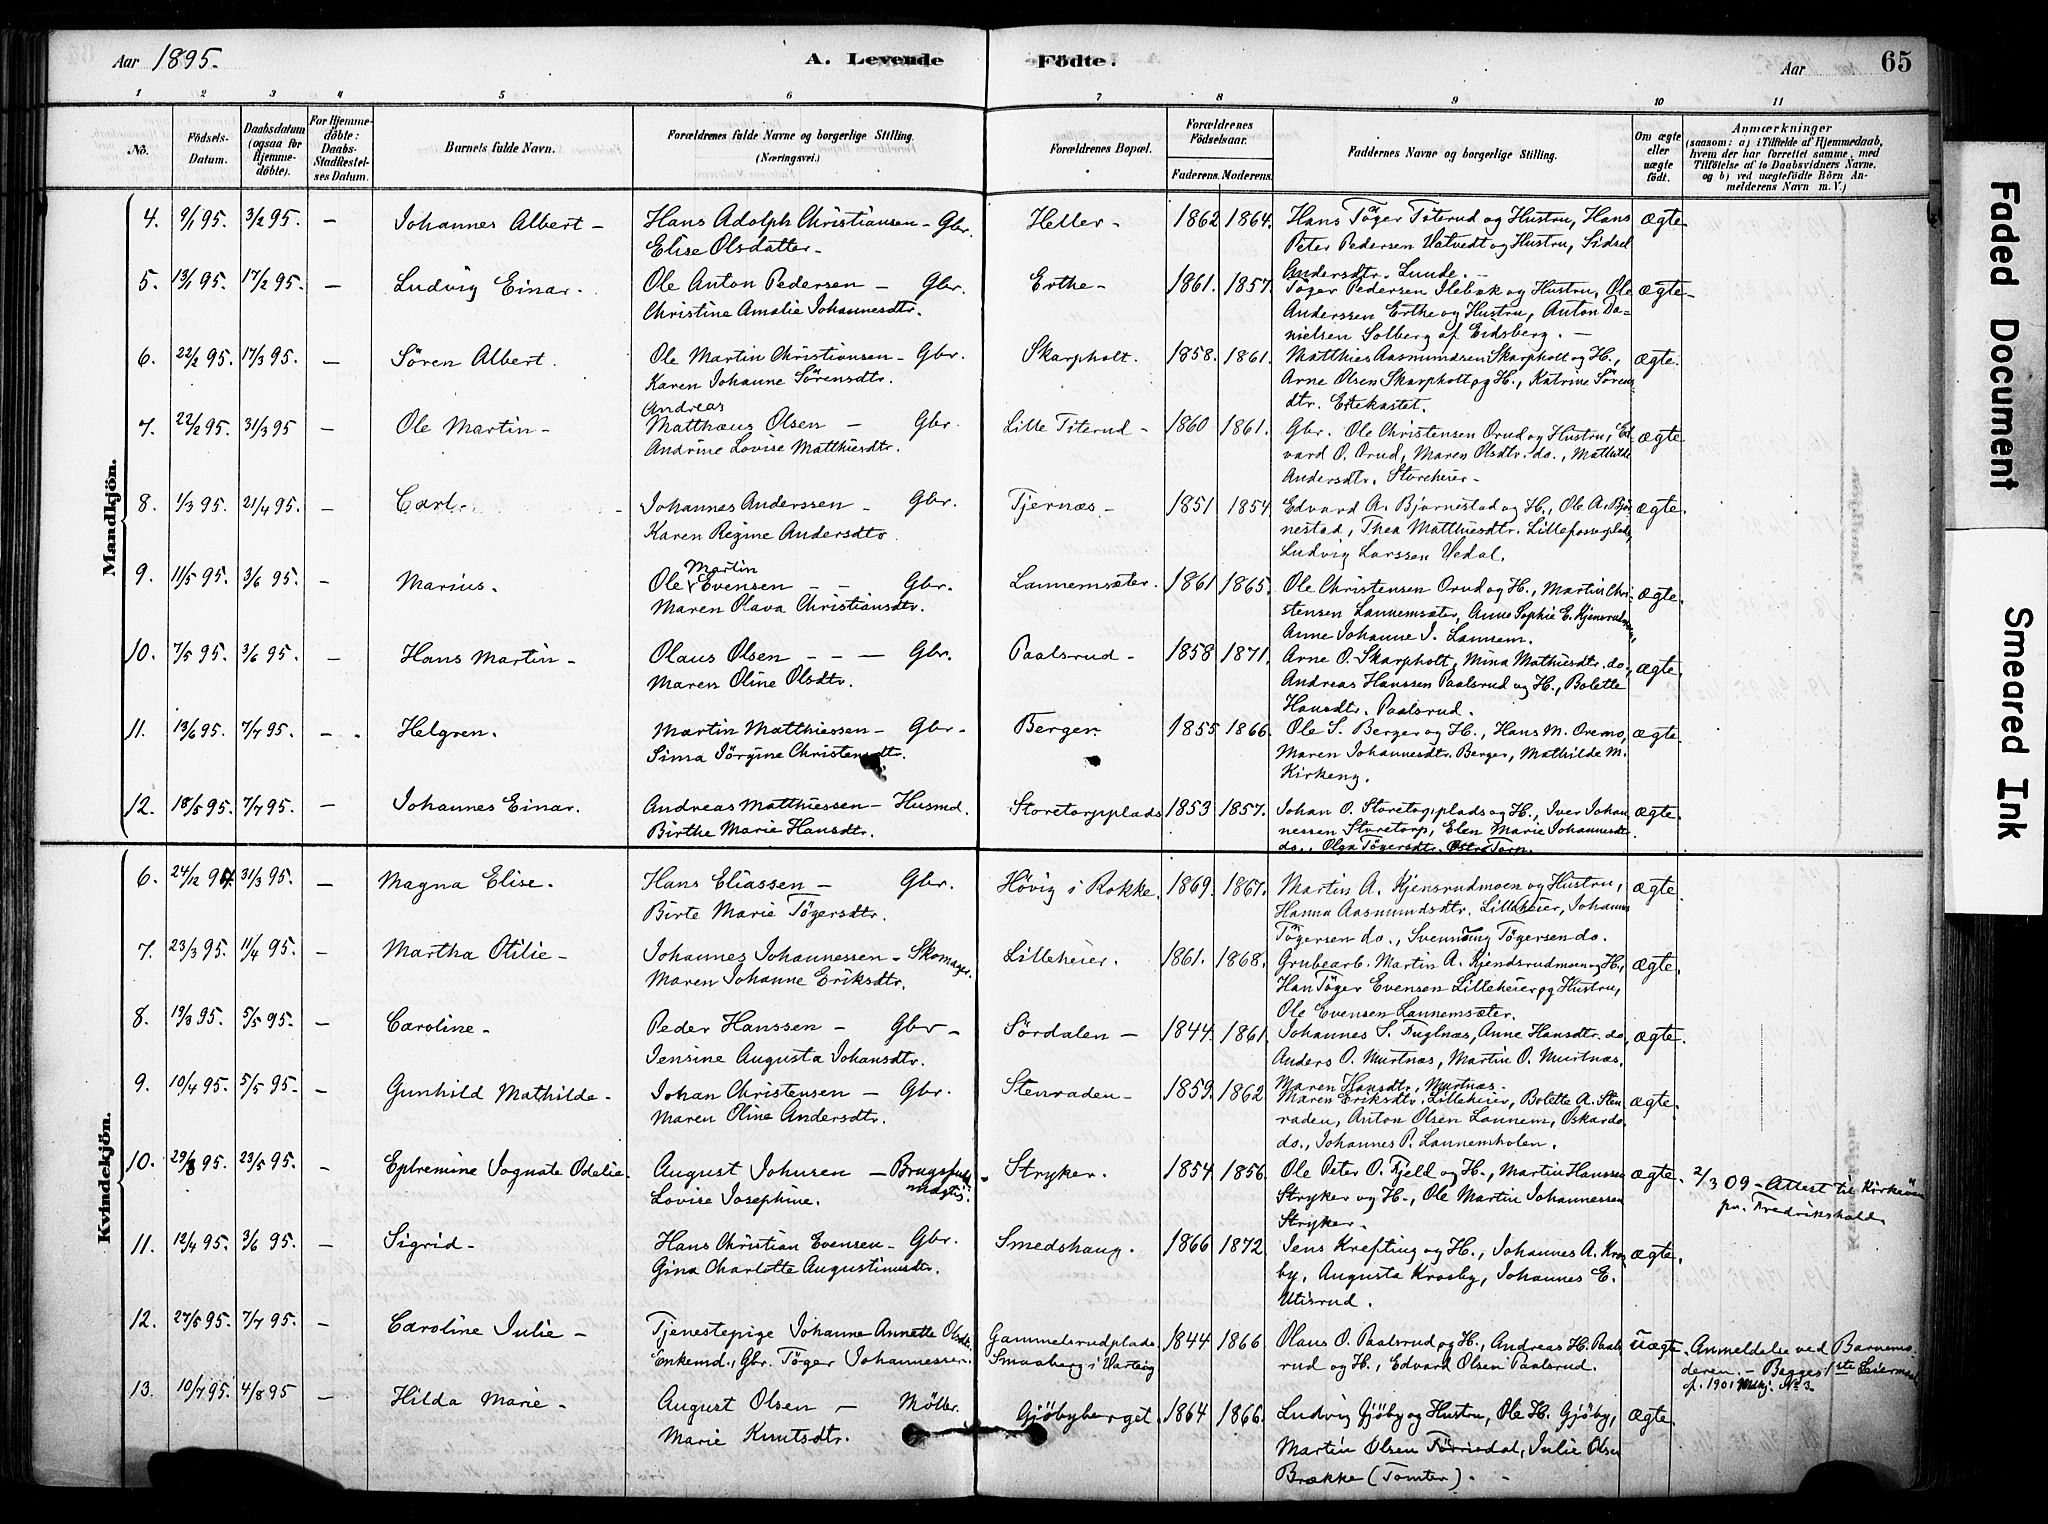 Aar 1895.
A. Levende
Födte.
Aar
65
1 2 3 4 5 6 7 8 9 10 11
No.
Födsels-Datum.
Daabsdatum (ogsaa for Hjemme-döbte).
For Hjemme-döbte: Daabs-Stadfæstel-ses Datum.
Barnets fulde Navn.
Forældrenes fulde Navne og borgerlige Stilling. (Næringsvei.)
Forældrenes Bopæl.
Forældrenes Födselsaar.
Faderens. Moderens.
Faddernes Navne og borgerlige Stilling.
Om ægte eller uægte födt.
Anmærkninger
(saasom: a) i Tilfælde af Hjemmedaab, hvem der har forrettet samme, med Tilföielse af to Daabsvidners Navne. og b) ved uægtefödte Börn An-melderens Navn m. V.)
Mandkjön.
4. 9/1 95. 3/2 95. — Johannes Albert — Hans Adolph Christiansen — Gbr. Heller — 1862 1864. Hans Töger Titerud og Hustru, Hans ægte
Elise Olsdatter — Peter Pedersen Vatvedt og Hustru, Sidsel
Andersdtr. Lunde. —
5. 13/1 95. 17/2 95. — Ludvig Einar. Ole Anton Pedersen — Gbr. Erthe — 1861. 1857. Töger Pedersen Ilebæk og Hustru, Ole ægte —
Christine Amalie Johannesdtr. Anderssen Erthe og Hustru, Anton Da=
nielsen Solberg af Eidsberg. —
6. 22/2 95. 17/3 95. — Sören Albert. Ole Martin Christiansen — Gbr. Skarpholt. 1858. 1861. Matthies Aasmundsen Skarpholt og H., ægte.
Karen Johanne Sörensdtr. Arne Olsen Skarpholt og H., Katrine Sörens
dtr. Ertekastet.
Andreas
7. 22/2 95. 31/3 95 — Ole Martin — Matthæus Olsen — Gbr. Lille Titerud — 1860 1861. Gbr. Ole Christensen Orud og Hustru, Ed ægte
Andrine Lovise Matthiesdtr. vard O. Orud, Maren Olsdtr. do., Mathilde
Andersdtr. Storeheier —
8. 1/3 95. 21/4 95. — Carl. Johannes Anderssen — Gbr. Tjernæs — 1851 1854. Edvard A. Bjørnestad og H., Ole A. Bjør ægte.
Karen Regine Andersdtr nestad, Thea Matthiesdtr.
Ludvig Larssen Vedal.
Martin
9. 11/5 95. 3/6 95. — Marius. Ole Evensen — — Gbr. Lannemsæter. 1861 1865. Ole Christensen Orud og H., Martin Chri ægte.
Maren Olava Christiansdtr. stensen Lannemsæter, Anne Sophie E. Kjensrudmoen,
Anne Johanne J. Lannem.
10. 7/5 95. 3/6 95. — Hans Martin — Olaus Olsen — — — Gbr. Paalsrud — 1858 1871. Arne O. Skarpholt, Mina Mathiesdtr. do., ægte.
Maren Oline Olsdtr. Andreas Hanssen Paalsrud og H., Bolette
Hansdtr. Paalsrud.
11. 13/6 95. 7/7 95. — Helgren. Martin Matthiessen — Gbr — Berger 1855 1866. Ole S. Berger og H., Hans M. Oremo, ægte.
Sima Jörgine Christensdtr. Maren Johannesdtr. Berger, Mathilde M.
Kirkeng.
12. 18/5 95. 7/7 95. — Johannes Einar. Andreas Matthiessen — Husmd. Storetorpplads 1853 1857. Johan O. Storetorpplads og H., Iver Johan ægte.
Birthe Marie Hansdtr. nessen Storetorp, Elen Marie Johannesdtr.
do., Olga Tögersdtr.
Kvindekjön.
6. 24/12 94. 31/3 95. — Magna Elise. Hans Eliassen — Gbr. Hövig i Rokke. 1869. 1867. Martin A. Kjensrudmoen og Hustru, ægte.
Birte Marie Tögersdtr. Hanna Aasmundsdtr. Lilleheier, Johannes
Tögersen do., Svenning Tögersen do.
7. 23/3 95. 11/4 95. — Martha Otilie — Johannes Johannessen — Skomager. Lilleheier. 1861. 1868. Grubearb. Martin A. Kjendsrudmoen og H., ægte.
Maren Johanne Eriksdtr. Han Töger Evensen Lilleheier og Hustru,
Ole Evensen Lannemsæter.
8. 19/3 95. 5/5 95. — Caroline — Peder Hanssen — Gbr — Sördalen — 1844. 1861. Johannes S. Fuglnæs, Anne Hansdtr. do, ægte.
Jensine Augusta Johansdtr. Anders O. Murtnæs, Martin O. Murtnæs.
Maren Hansdtr. Murtnæs.
9. 10/4 95. 5/5 95. — Gunhild Mathilde. Johan Christensen — Gbr. Stenraden — 1859. 1862 Maren Eriksdtr. Lilleheier, Bolette A. Sten ægte.
Maren Oline Andersdtr. raden, Anton Olsen Lannem, Oskar do.
do., Johannes P. Lannemholen.
10. 29/3 95. 23/5 95. — Eptremine Jognate Odelie. August Johnsen — Stryker. 1854. 1856. Ole Peter O. Fjeld og H., Martin Hanssen ægte. 2/3 09 — Attest til Kirkeværn
Lovise Josephine. Stryker og H., Ole Martin Johannessen pr. Fredrikshald
Stryker.
11. 12/4 95. 3/6 95. — Sigrid — Hans Christian Evensen — Gbr. Smedshaug. 1866 1872. Jens Krefting og H., Johannes A. Kros ægte.
Gina Charlotte Augustinusdtr. by, Augusta Krosby, Johannes E.
Utisrud.
12. 27/5 95. 7/7 95. — Caroline Julie — Tjenestepige Johanne Annette Olsdtr. Gammelsrudplads 1844 1866. Olaus O. Paalsrud og H., Andreas H. Paals uægte. Anmeldelse ved Barnemo
Enkemd., Gbr. Töger Johannessen. Smaaberg i Varteig rud og H., Edvard Olsen Paalsrud. deren. — Begges 1ste Leiermaal
cf. 1901 Mdkj. No 3.
13. 10/7 95. 4/8 95 — Hilda Marie — August Olsen — Möller. Gjöbyberget. 1864 1866. Ludvig Gjöby og Hustru, Ole H. Gjöby, ægte.
Marie Knutsdtr. Martin Olsen Törrisdal, Julie Olsen
Brække (Tomter). —
Faded Document
Smeared Ink